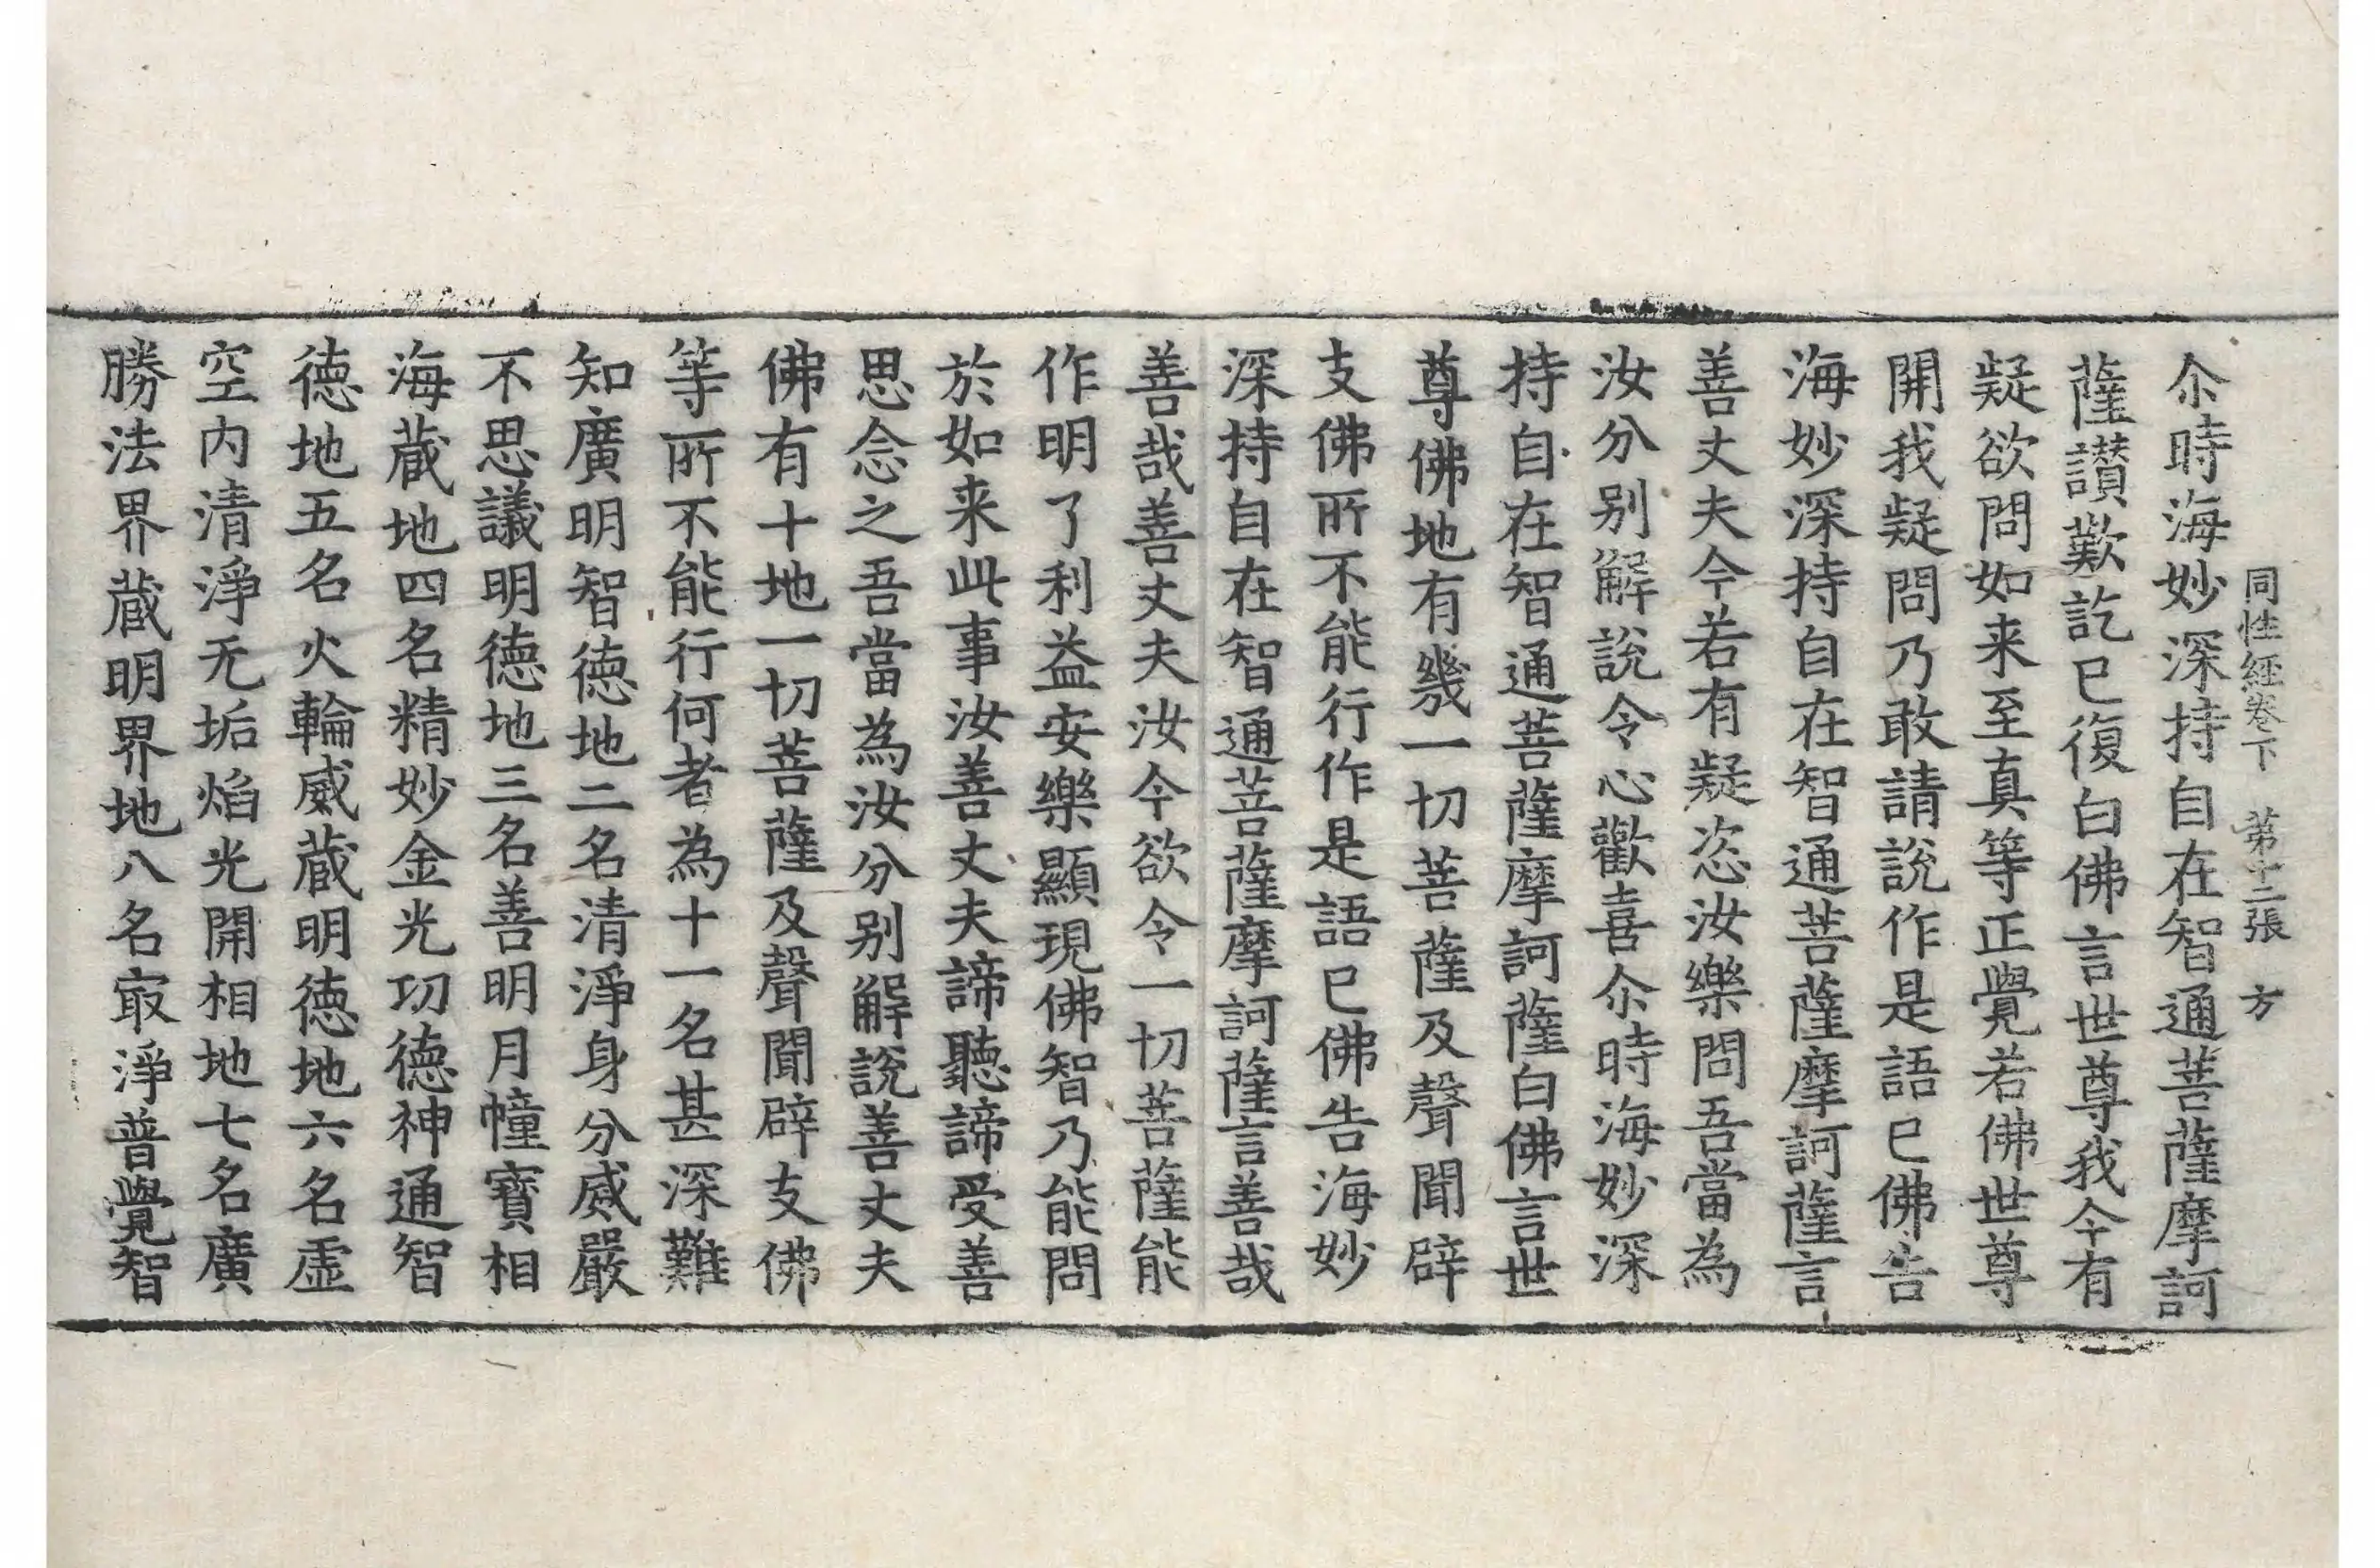 同性經卷下 第十二張 方
尒時海妙深持自在智通菩薩摩訶
薩讃歎訖已復白佛言世尊我今有
疑欲問如来至真等正覺若佛世尊
開我疑問乃敢請說作是語已佛告
海妙深持自在智通菩薩摩訶薩言
善丈夫今若有疑恣汝樂問吾當為
汝分别解說令心歡喜尒時海妙深
持自在智通菩薩摩訶薩白佛言世
尊佛地有幾一切菩薩及聲聞辟
支佛所不能行作是語已佛告海妙
深持自在智通菩薩摩訶薩言善哉
善哉善丈夫汝今欲令一切菩薩能
作明了利益安樂顯現佛智乃能問
於如来此事汝善丈夫諦聽諦受善
思念之吾當為汝分别解說善丈夫
佛有十地一切菩薩及聲聞辟支佛
等所不能行何者為十一名甚深難
知廣明智德地二名清淨身分威嚴
不思議明德地三名善明月幢寳相
海蔵地四名精妙金光功德神通智
德地五名火輪威蔵明德地六名虛
空内清淨无垢焰光開相地七名廣
勝法界蔵明界地八名㝡淨普覺智